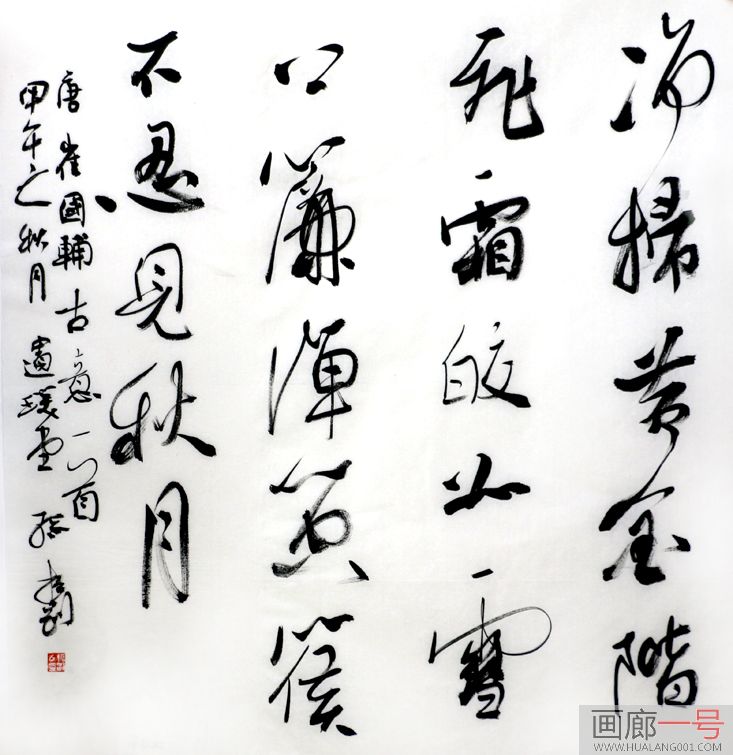 淨掃黃金階
飛霜皎如雪
下簾彈箜篌
不忍見秋月
唐崔國輔古意一首
甲午之秋月
画廊一号
WWW.HUALANG001.COM